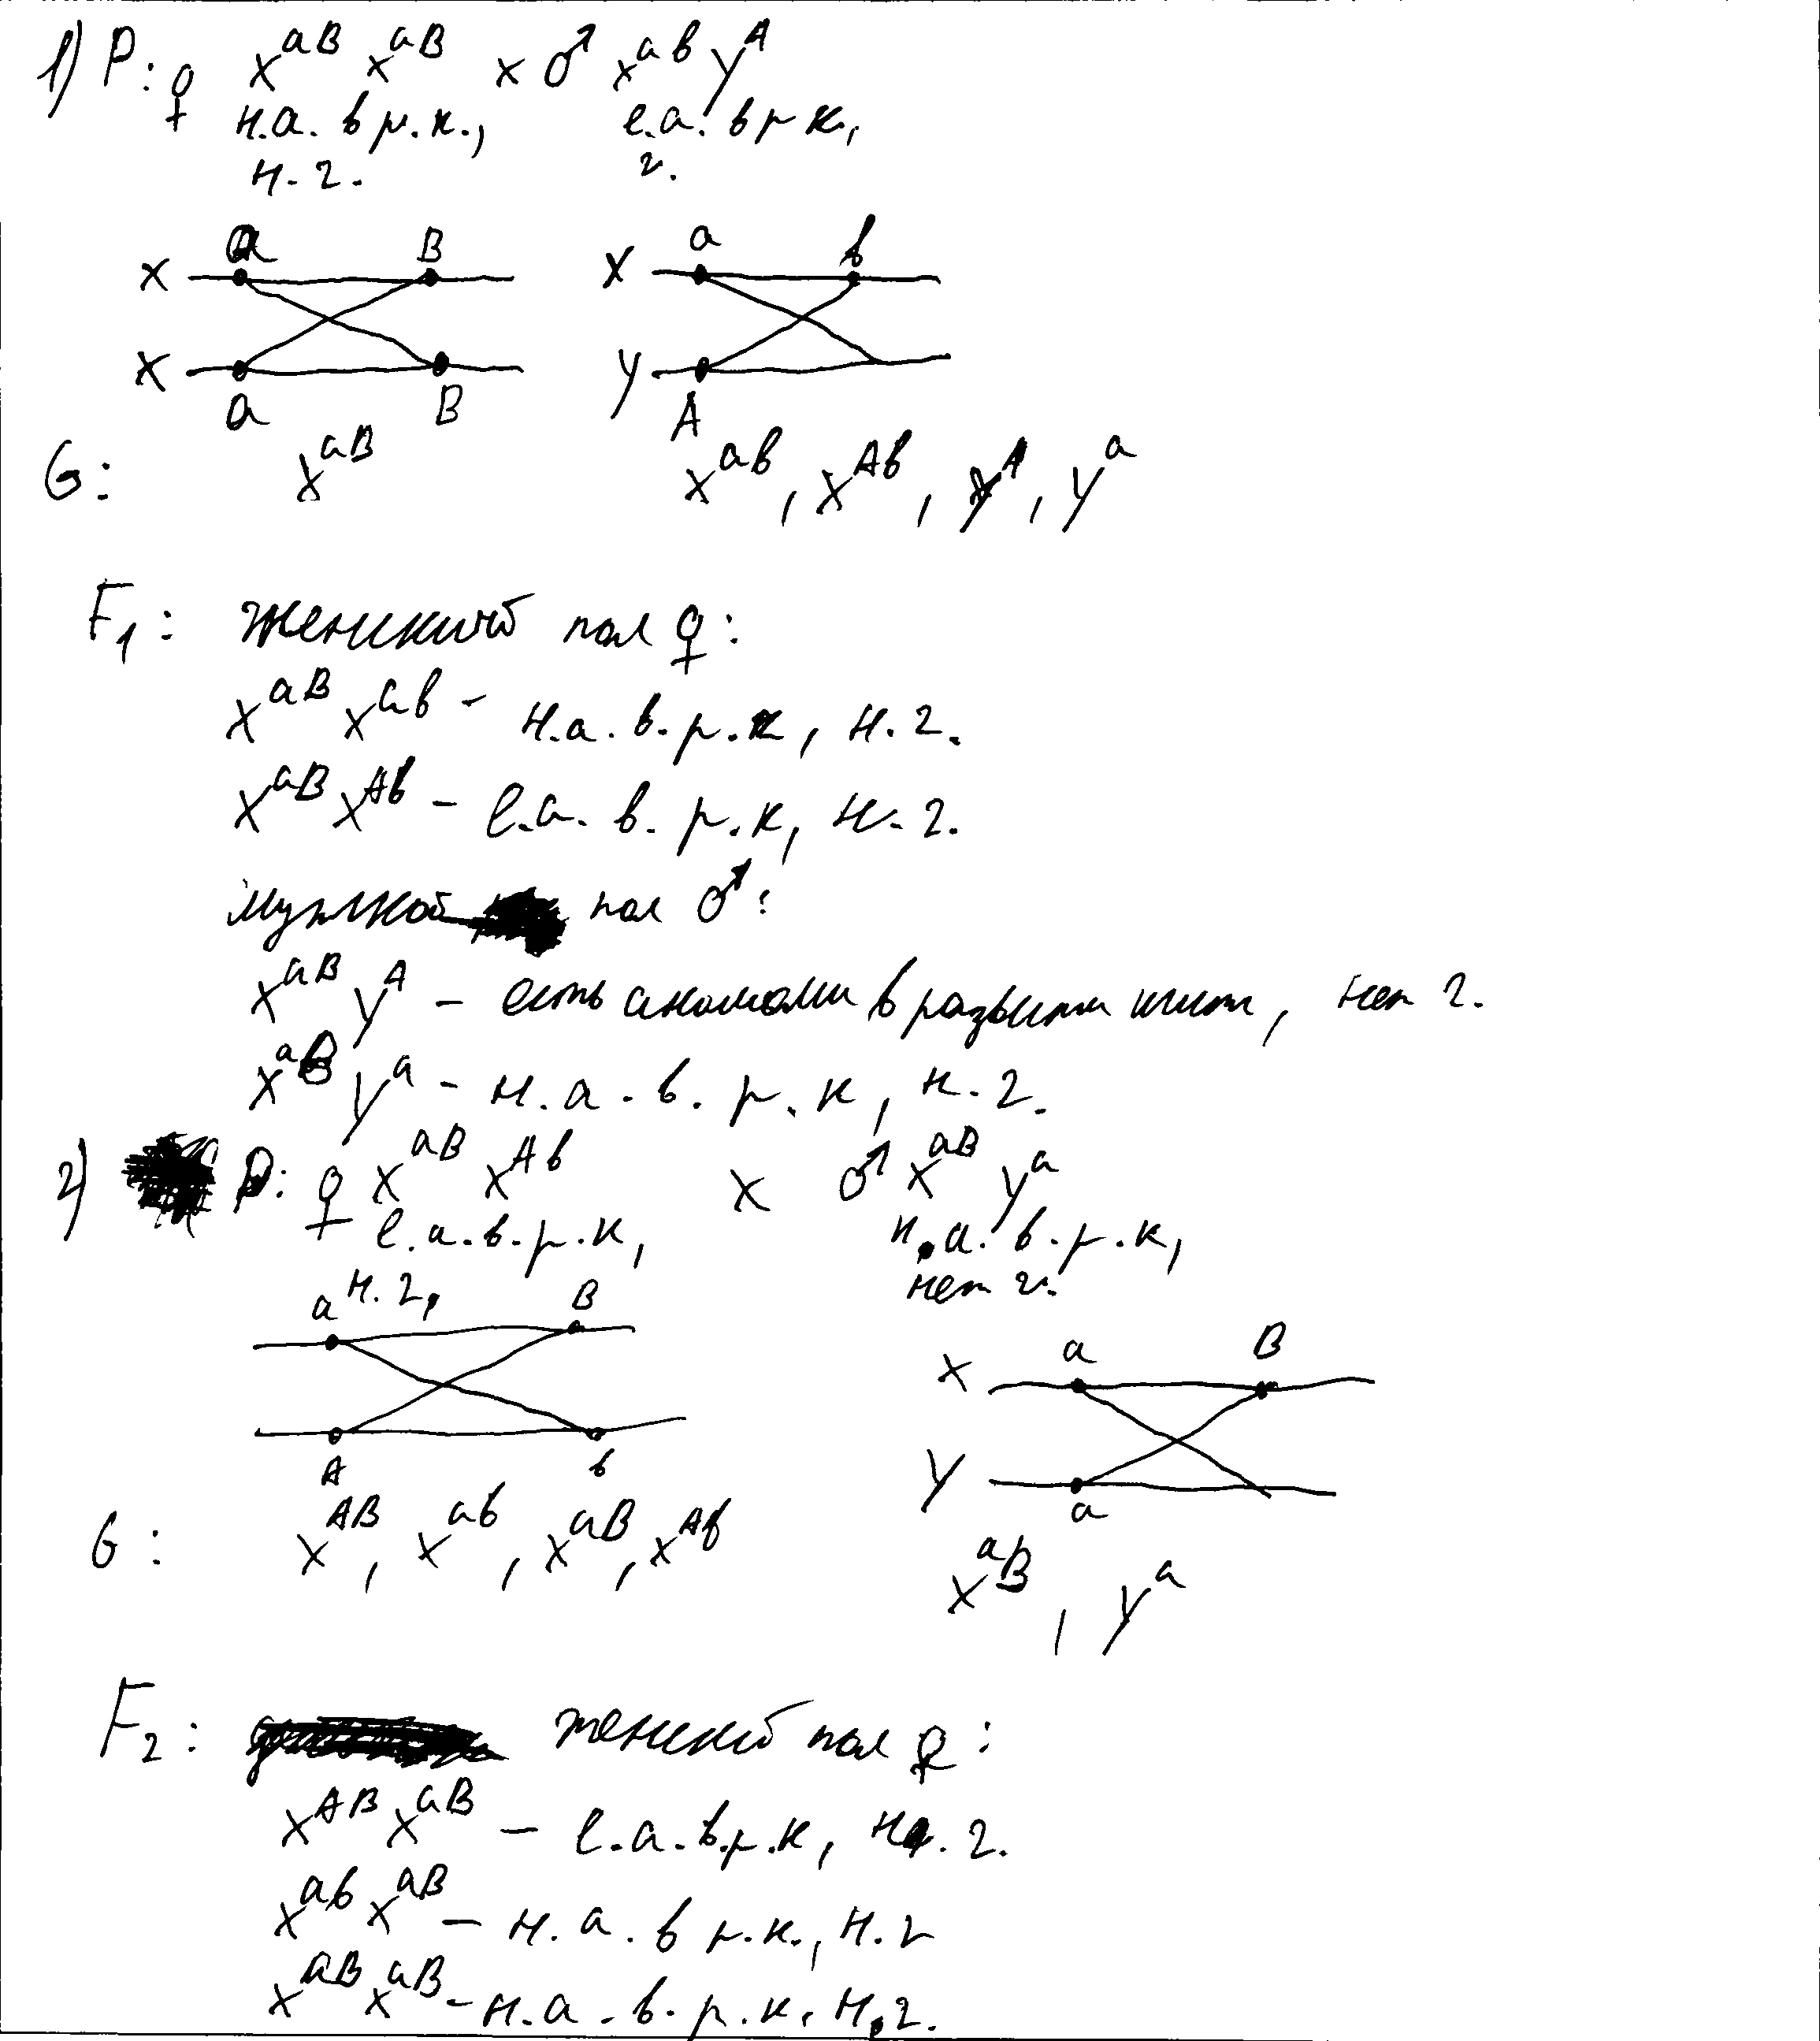 1) P: ♀ X^aB X^aB x ♂ X^aв Y^A
н.а. в р.к., е.а. в р к,
н. г. г.
X a B X a в
X a B Y A
G: X^aB X^aв, X^Aв, Y^A, Y^a
F1: Женский пол ♀:
X^aB X^aв - н.а.в.р.к, н.г.
X^aB X^Aв - е.а.в.р.к, н.г.
мужской пол ♂:
X^aB Y^A - есть аномалии в развитии кисти, нет г.
X^aB Y^a - н.а.в.р.к, н.г.
2) P: ♀ X^aB X^Aв x ♂ X^aB Y^a
е.а.в.р.к, н.а.в.р.к,
н.г, нет г.
a B X a B
A в Y a
G: X^AB, X^aв, X^aB, X^Aв X^aB, Y^a
F2: женский пол ♀:
X^AB X^aB - е.а.в.р.к, н.г.
X^aв X^aB - н.а.в р.к., н.г
X^aB X^aB - н.а.в.р.к, н.г.